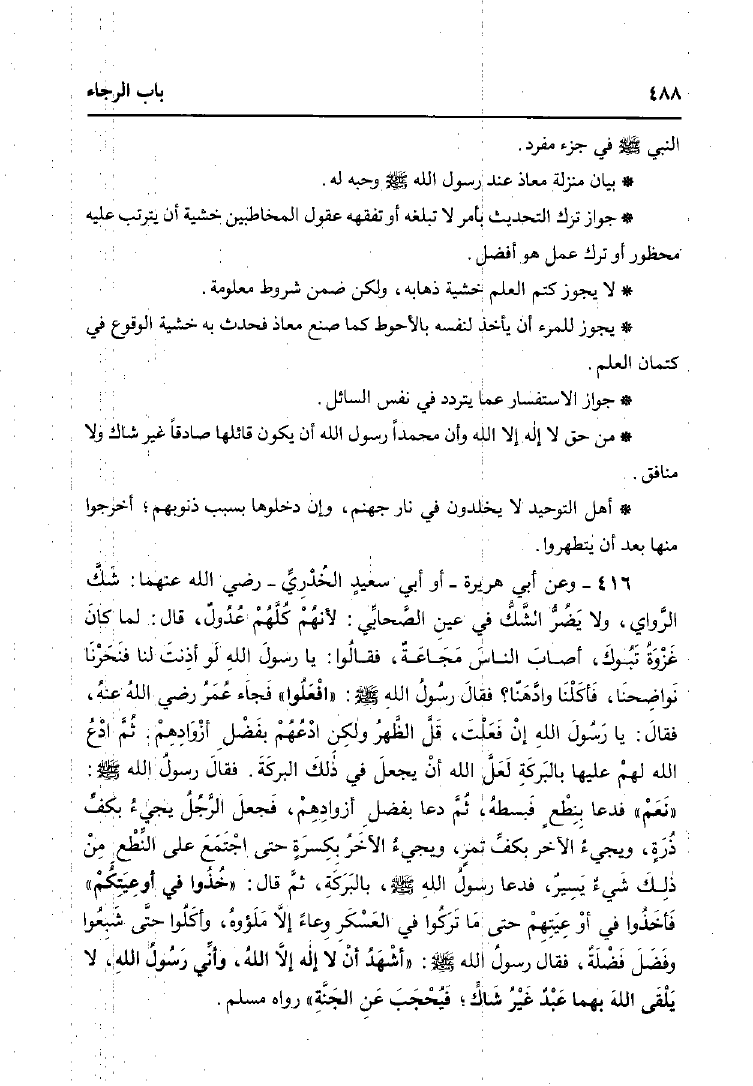 ٤٨٨ باب الرجاء
النبي ﷺ في جزء مفرد.
* بيان منزلة معاذ عند رسول الله ﷺ وحبه له.
* جواز ترك التحديث بأمر لا تبلغه أو تفقهه عقول المخاطبين خشية أن يترتب عليه
محظور أو ترك عمل هو أفضل.
* لا يجوز كتم العلم خشية ذهابه، ولكن ضمن شروط معلومة.
* يجوز للمرء أن يأخذ لنفسه بالأحوط كما صنع معاذ فحدث به خشية الوقوع في
كتمان العلم.
* جواز الاستفسار عما يتردد في نفس السائل.
* من حق لا إله إلا الله وأن محمداً رسول الله أن يكون قائلها صادقاً غير شاك ولا
منافق.
* أهل التوحيد لا يخلدون في نار جهنم، وإن دخلوها بسبب ذنوبهم؛ أخرجوا
منها بعد أن يتطهروا.
٤١٦ - وعن أبي هريرة - أو أبي سعيدٍ الخُدْريِّ - رضي الله عنهما: شَكَّ
الرَّواي، ولا يَضُرُّ الشَّكُّ في عينِ الصَّحابِّي: لأنهُمْ كُلَّهُمْ عدُولٌ، قال: لما كانَ
غَزْوَةُ تَبُوكَ، أصابَ الناسَ مَجَاعَةٌ، فقالُوا: يا رسولَ اللهِ لَو أذِنتَ لنا فنَحَرْنَا
نَواضِحنَا، فأكَلْنَا وادَّهَنَّا؟ فقالَ رسُولُ اللهِ ﷺ: «افْعَلُوا» فجاءَ عُمَرُ رضي اللهُ عنهُ،
فقالَ: يا رَسُولَ اللهِ إنْ فَعَلْتَ، قَلَّ الظَّهرُ ولكِن ادْعُهُمْ بفَضْلِ أزْوَادِهِمْ. ثُمَّ ادْعُ
الله لهمْ عليها بالبَركةِ لَعَلَّ الله أنْ يجعلَ في ذلكَ البركةَ. فقالَ رسولُ الله ﷺ:
«نَعَمْ» فدعا بِنِطْعٍ فبسطهُ، ثُمَّ دعا بفضلِ أزوادِهِمْ، فجعلَ الرَّجُلُ يجيءُ بكفِّ
ذُرَةٍ، ويجيءُ الآخر بكفِّ تمرٍ، ويجيءُ الآخَرُ بكِسرَةٍ حتى اجْتَمَعَ على النِّطْعِ مِنْ
ذلِكَ شَيءٌ يَسِيرٌ، فدعا رسُولُ اللهِ ﷺ، بالبَرَكةِ، ثمَّ قال: «خُذُوا في أوعِيَتِكُمْ»
فَأخَذُوا في أوْ عِيَتِهِمْ حتى مَا تَرَكُوا في العَسْكَرِ وعاءً إلَّا مَلَؤوهُ، وأكَلُوا حتَّى شَبِعُوا
وفَضَلَ فَضْلَةٌ، فقال رسولُ الله ﷺ: «أشْهَدُ أنْ لا إلهَ إلَّا اللهُ، وأنِّي رَسُولُ اللهِ، لا
يَلْقَى اللهَ بهما عَبْدٌ غَيْرُ شاكٍّ؛ فَيُحْجَبَ عَنِ الجَنَّةِ» رواه مسلم.